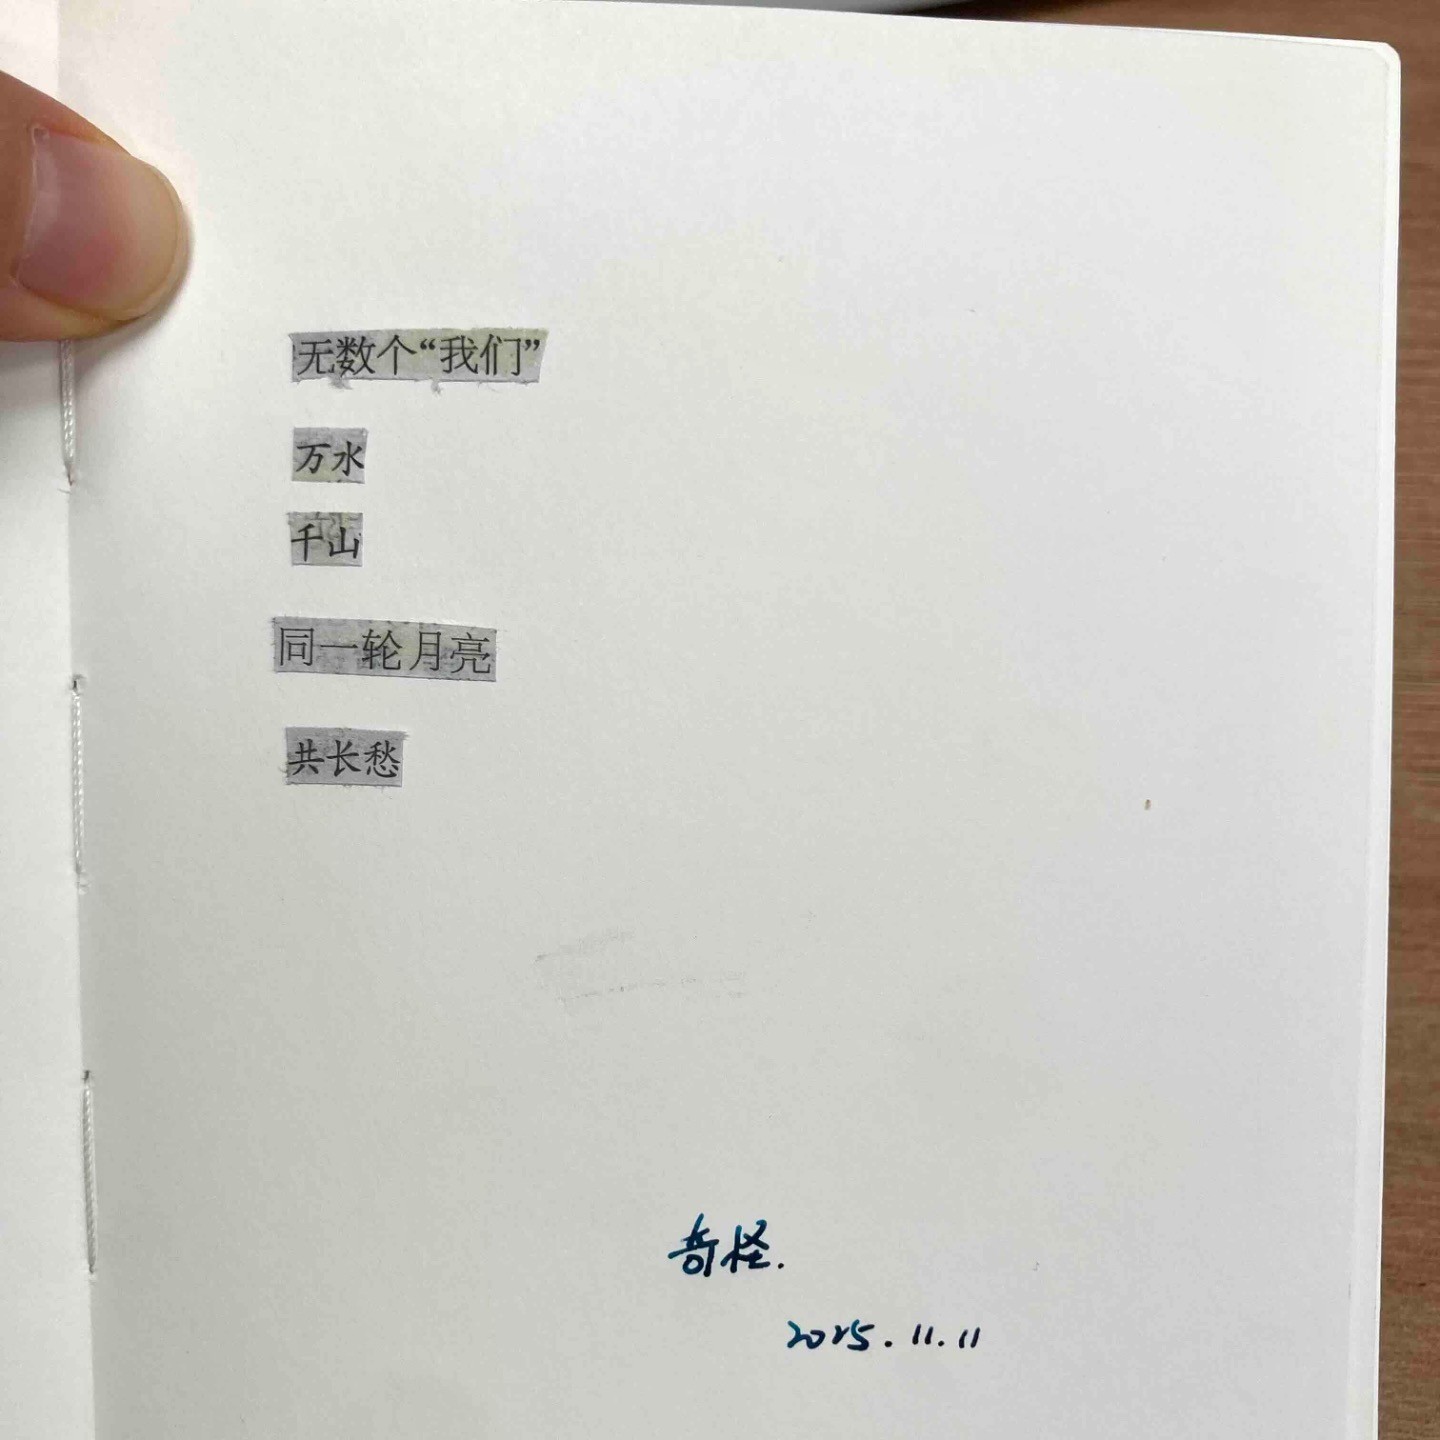 无数个“我们”
万水
千山
同一轮月亮
共长愁
奇怪.
2025.11.11